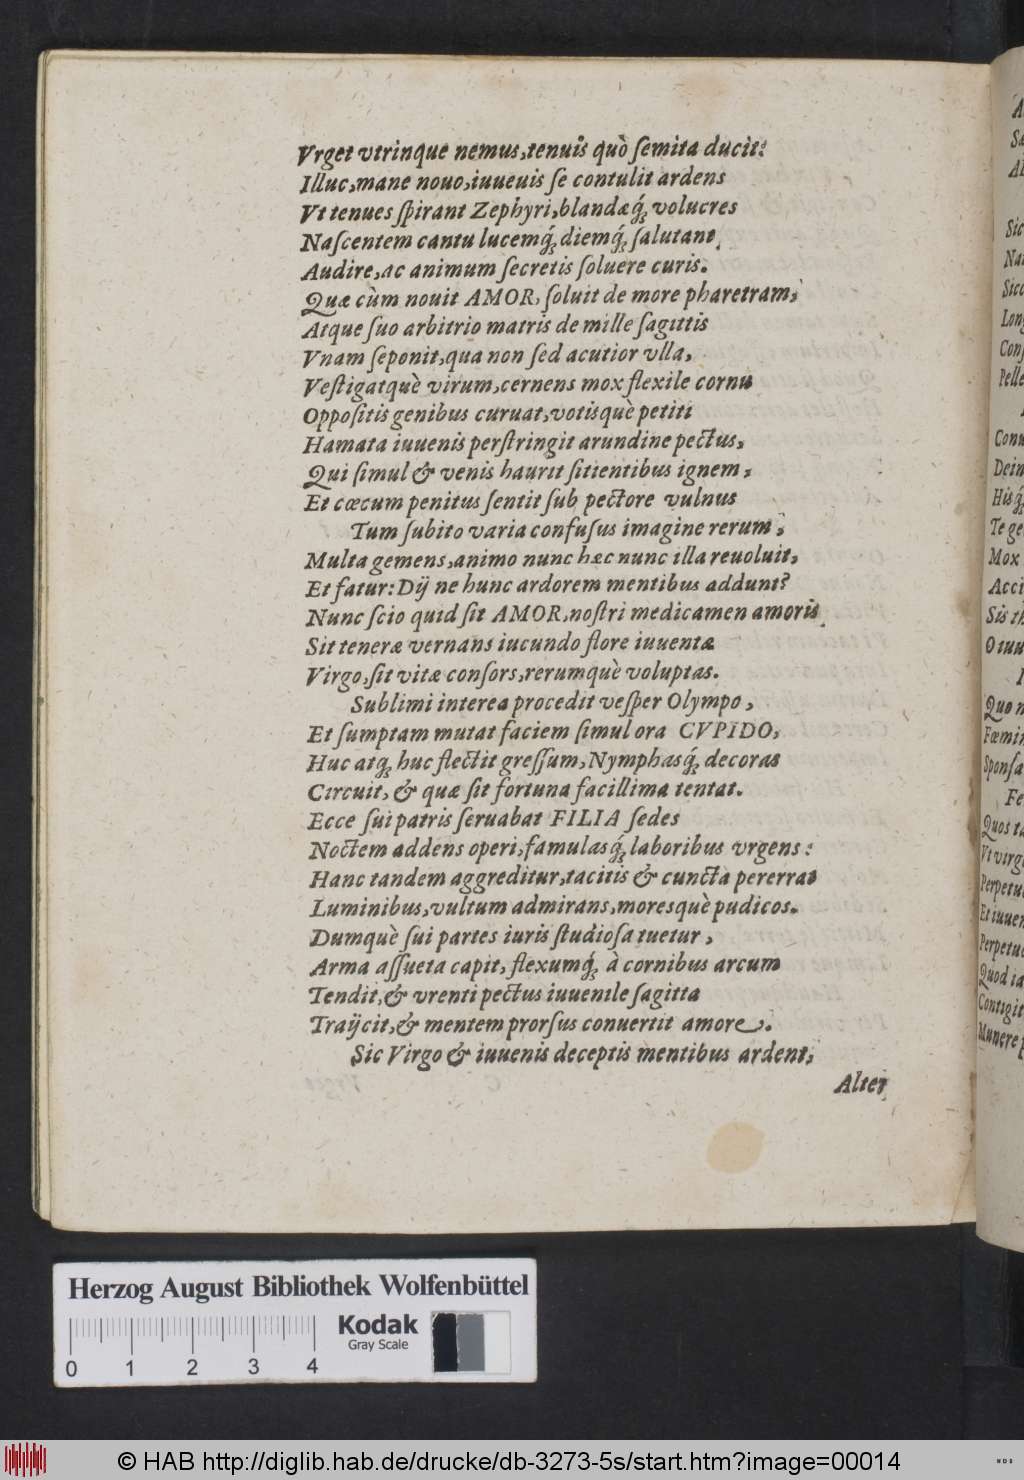 Vrget vtrinque nemus, tenuis quò ſemita ducit:
Illuc, mane nouo, iuueuis ſe contulit ardens
Vt tenues ſpirant Zephyri, blandæq́; volucres
Naſcentem cantu lucemq́; diemq́; ſalutant,
Audire, ac animum ſecretis ſoluere curis.
Quæ cùm nouit AMOR, ſoluit de more pharetram,
Atque ſuo arbitrio matris de mille ſagittis
Vnam ſeponit, qua non ſed acutior vlla,
Veſtigatquè virum, cernens mox flexile cornu
Oppoſitis genibus curuat, votisquè petiti
Hamata iuuenis perſtringit arundine pectus,
Qui ſimul & venis haurit ſitientibus ignem,
Et cœcum penitus ſentit ſub pectore vulnus
Tum ſubito varia confuſus imagine rerum,
Multa gemens, animo nunc hæc nunc illa reuoluit,
Et fatur: Dij ne hunc ardorem mentibus addunt?
Nunc ſcio quid ſit AMOR, noſtri medicamen amoris,
Sit teneræ vernans iucundo flore iuuentæ
Virgo, ſit vitæ conſors, rerumquè voluptas.
Sublimi interea procedit veſper Olympo,
Et ſumptam mutat faciem ſimul ora CVPIDO,
Huc atq; huc flectit greſſum, Nymphasq́; decoras
Circuit, & quæ ſit fortuna facillima tentat.
Ecce ſui patris ſeruabat FILIA ſedes
Noctem addens operi, famulasq́; laboribus vrgens:
Hanc tandem aggreditur, tacitis & cuncta pererrat
Luminibus, vultum admirans, moresquè pudicos.
Dumquè ſui partes iuris ſtudioſa tuetur,
Arma aſſueta capit, flexumq́; à cornibus arcum
Tendit, & vrenti pectus iuuenile ſagitta
Traijcit, & mentem prorſus conuertit amore.
Sic Virgo & iuuenis deceptis mentibus ardent,
Alter
Sic
Long
Pelle
Te ge
Mox
Acci
Sis th
O iuu
Quo n
Fœmin
Sponſa
Fe
Quos ta
Vt virg
Perpetu
Et iuuen
Perpetu
Quod ia
Contigit
Munere p
Herzog August Bibliothek Wolfenbüttel
Kodak
Gray Scale
0 1 2 3 4
© HAB http://diglib.hab.de/drucke/db-3273-5s/start.htm?image=00014